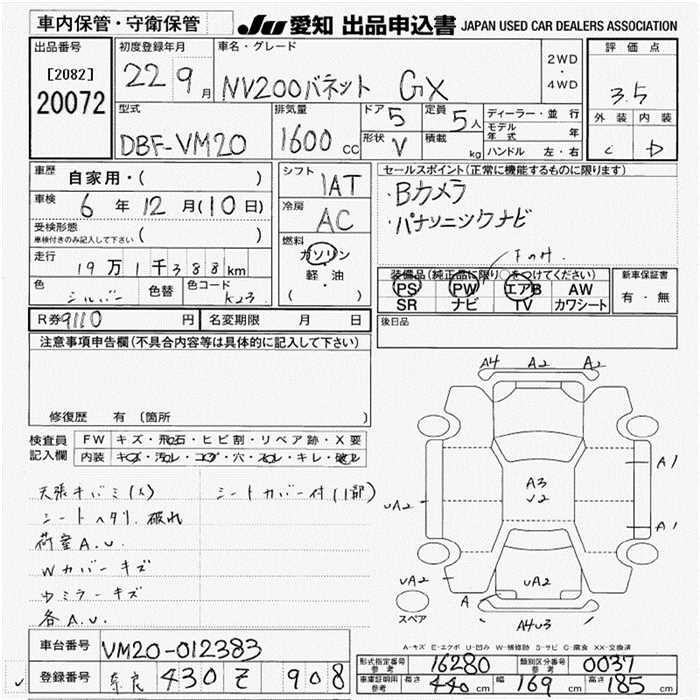 車内保管・守衛保管
JU 愛知 出品申込書 JAPAN USED CAR DEALERS ASSOCIATION
出品番号
[2082]
20072
初度登録年月
22 9月
車名・グレード
NV200バネット GX
2WD
・
4WD
評価点
3.5
外装 内装
C D
型式
DBF-VM20
排気量
1600 cc
ドア 5
定員 5人
形状 V
積載 kg
ディーラー・並行
モデル年式 年
ハンドル 左・右
車歴
自家用・( )
車検
6年12月(10日)
受検形態
車検付きのみ記入して下さい ( )
走行
19万1千388km
色
シルバー
色替
色コード
K23
シフト
1AT
冷房
AC
燃料
ガソリン
・
軽・油
( )
セールスポイント(正常に機能するものに限ります)
・Bカメラ
・パナソニックナビ
装備品(純正品に限り○をつけてください)
PS PW エアB AW
SR ナビ TV カワシート
新車保証書
有・無
R券 9110 円
名変期限 月 日
後日品
注意事項申告欄(不具合内容等は具体的に記入して下さい)
修復歴 有 (箇所
検査員
記入欄
FW キズ・飛石・ヒビ割・リペア跡・X要
内装 キズ・汚レ・コゲ・穴・スレ・キレ・破レ
天張キバミ(人)
シートカバー付(1部)
シートヘタリ.破れ
荷室A.U.
Wカバーキズ
ウミラーキズ
各A.U.
A4 A2 A2
A1
A3
√2
UA2
A1
UA2
UA2
A
スペア
A4U3
A-キズ E-エクボ U-凹み W-補修跡 S-サビ C-腐食 XX-交換済
車台番号 VM20-012383
登録番号 奈良 430 そ 908
形式指定番号
参考
16280
類別区分番号
参考
0037
車庫証明用
参考
長さ 440 cm 幅 169 cm 高さ 185 cm